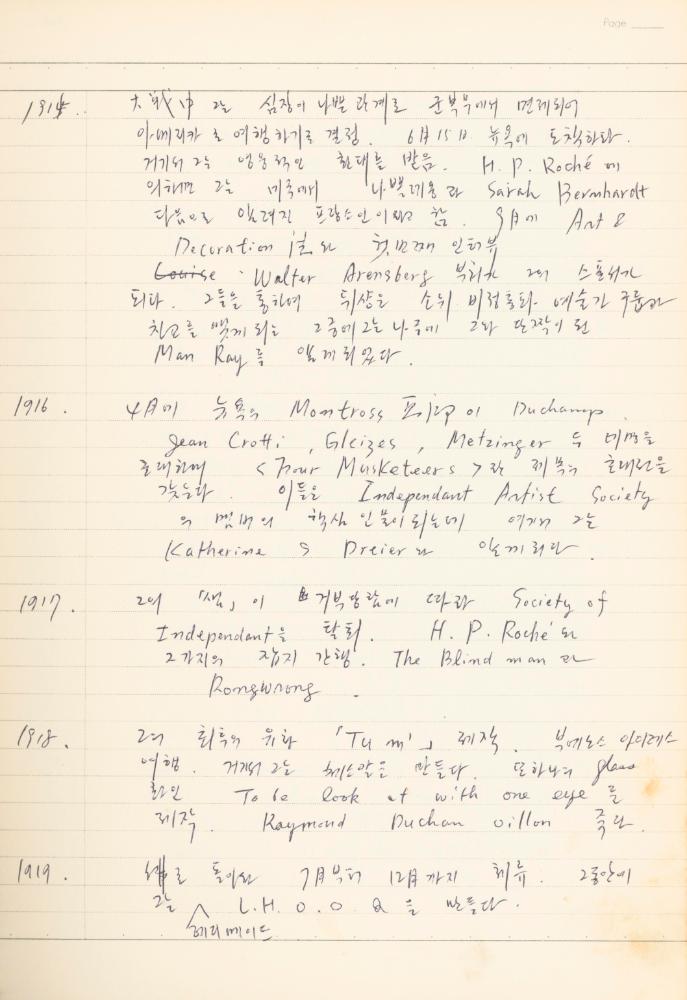 Page
1915. 大戦中 그는 심장이 나쁜 관계로 군복무에서 면제되어
아메리카로 여행하기로 결정. 6月15日 뉴욕에 도착하다.
거기서 그는 영웅적인 환대를 받음. H. P. Roché에
의하면 그는 미국에서 나폴레옹과 Sarah Bernhardt
다음으로 알려진 프랑스인이라고 함. 9月에 Art &
Decoration 誌와 첫번째 인터뷰
Walter Arensberg 부처가 그의 스폰서가
되다. 그들을 통하여 뒤샹은 소위 비정통화 예술가 구룹과
친교를 맺게 되는 그중에 그는 나중에 그와 단짝이 된
Man Ray를 알게 되었다.
1916. 4月에 뉴욕의 Montross 画廊이 Duchamp,
Jean Crotti, Gleizes, Metzinger 두 메명을
초대하여 <Four Musketeers>란 제목의 초대전을
갖는다. 이들은 Independant Artist Society
의 멤버의 핵심 인물이 되는데 여기서 그는
Katherine S Dreier와 알게 되다.
1917. 그의 「샘」이 거부당함에 따라 Society of
Independant을 탈퇴. H. P. Roché와
2가지의 잡지 간행. The Blind man과
Rongwrong.
1918. 그의 최후의 유화 「Tu m'」 제작. 부에노스 아이레스
여행. 거기서 그는 체스알을 만들다. 또하나의 glass
화인 To be look at with one eye를
제작. Raymond Duchan villon 죽다.
1919. 로 돌아와 7月부터 12月까지 체류. 그동안에
그는 L.H.O.O.Q을 만들다.
레디메이드